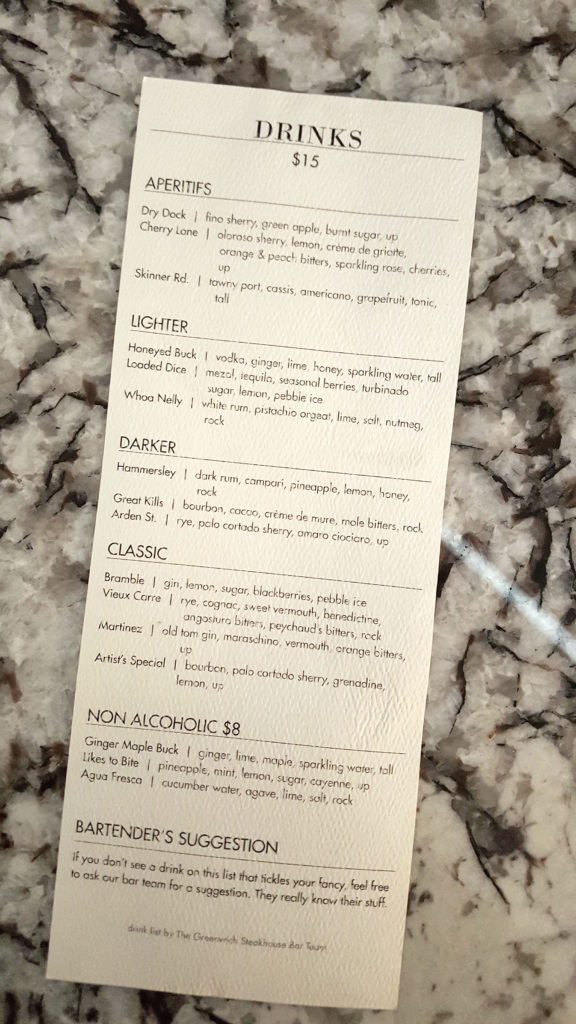 DRINKS
$15
APERITIFS
Dry Dock | fino sherry, green apple, burnt sugar, up
Cherry Lane | oloroso sherry, lemon, crème de griotte,
orange & peach bitters, sparkling rose, cherries,
up
Skinner Rd. | tawny port, cassis, americano, grapefruit, tonic,
tall
LIGHTER
Honeyed Buck | vodka, ginger, lime, honey, sparkling water, tall
Loaded Dice | mezcal, tequila, seasonal berries, turbinado
sugar, lemon, pebble ice
Whoa Nelly | white rum, pistachio orgeat, lime, salt, nutmeg,
rock
DARKER
Hammersley | dark rum, campari, pineapple, lemon, honey,
rock
Great Kills | bourbon, cacao, crème de mure, mole bitters, rock
Arden St. | rye, palo cortado sherry, amaro ciociaro, up
CLASSIC
Bramble | gin, lemon, sugar, blackberries, pebble ice
Vieux Carre | rye, cognac, sweet vermouth, benedictine,
angostura bitters, peychaud's bitters, rock
Martinez | old tom gin, maraschino, vermouth, orange bitters,
up
Artist's Special | bourbon, palo cortado sherry, grenadine,
lemon, up
NON ALCOHOLIC $8
Ginger Maple Buck | ginger, lime, maple, sparkling water, tall
Likes to Bite | pineapple, mint, lemon, sugar, cayenne, up
Agua Fresca | cucumber water, agave, lime, salt, rock
BARTENDER'S SUGGESTION
If you don't see a drink on this list that tickles your fancy, feel free
to ask our bar team for a suggestion. They really know their stuff.
drink list by The Greenwich Steakhouse Bar Team